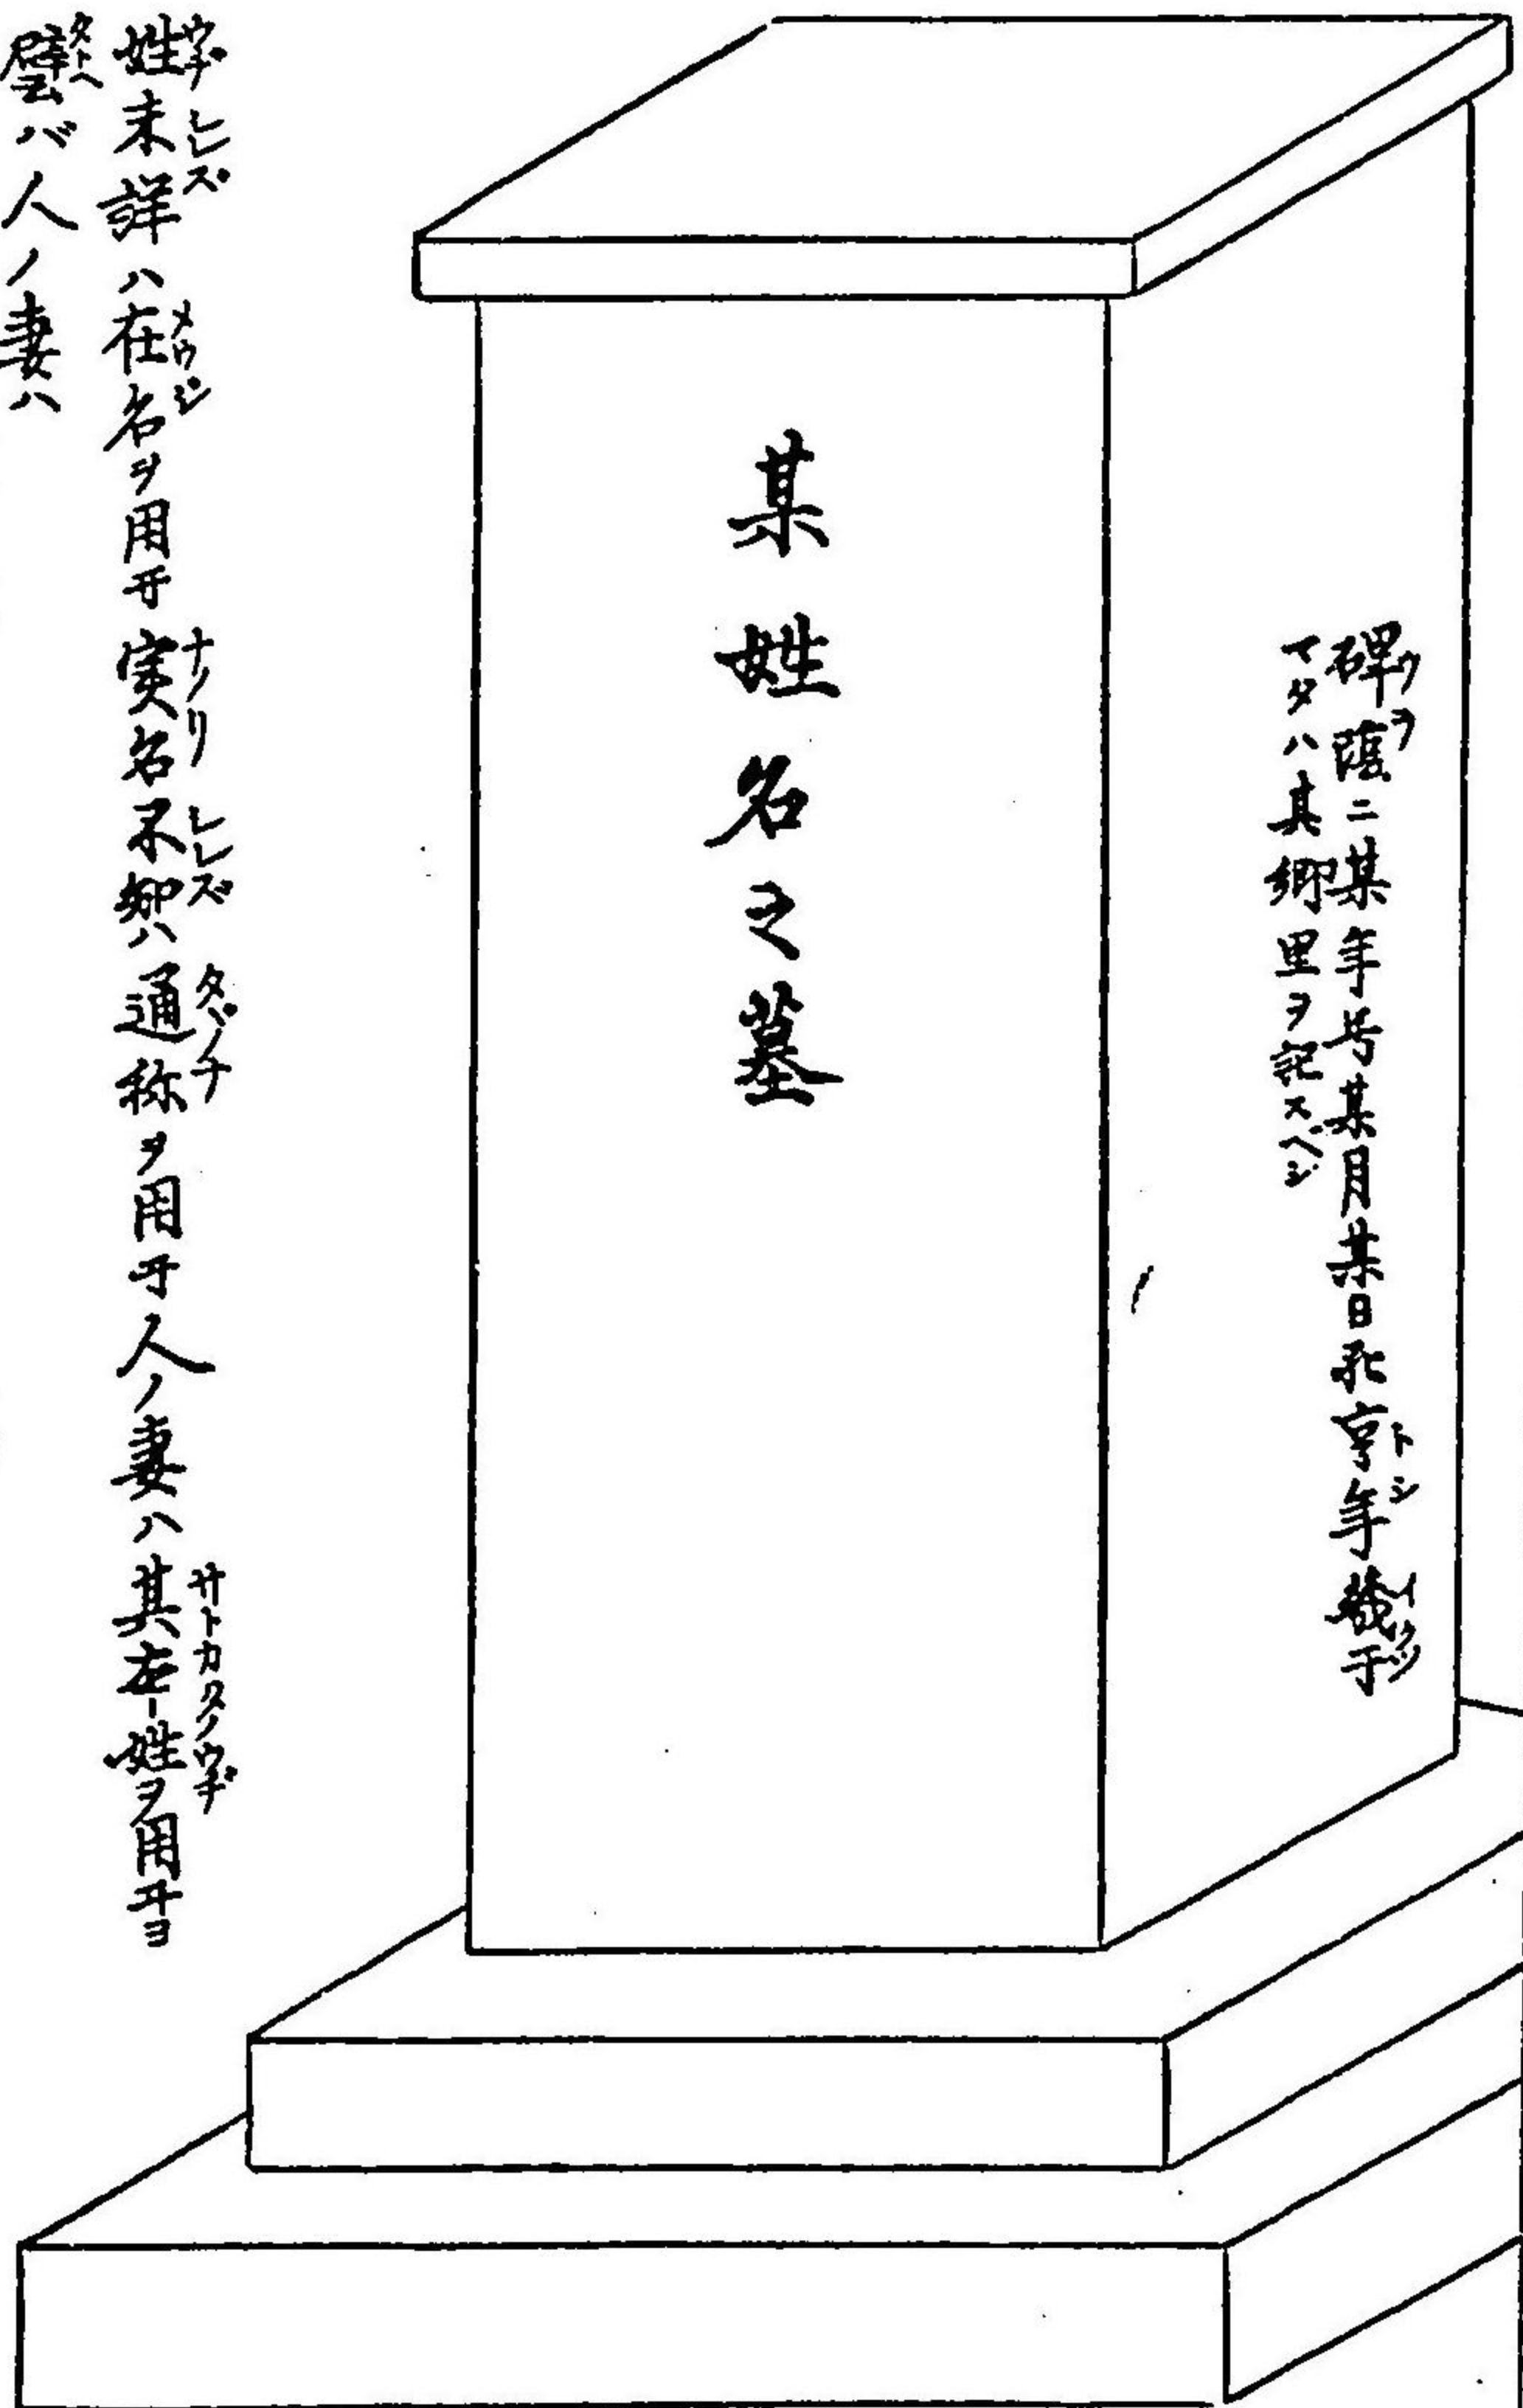 碑陰ニ某年号某月某日死享年幾于
マタハ其郷里ヲ記スベシ
某姓名之墓
姓未詳ハ在名ヲ用ヰ実名不知ハ通称ヲ用ヰ人ノ妻ハ其本姓ヲ用ヰヨ
譬バ人ノ妻ハ